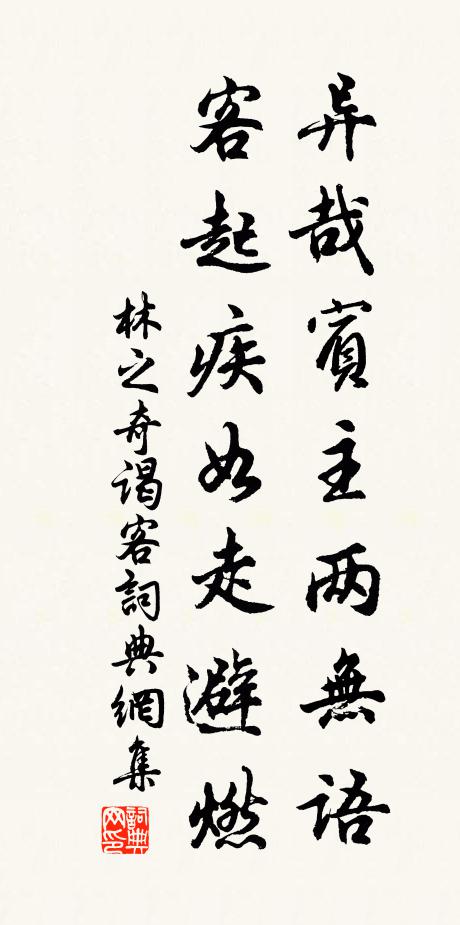 异哉賓主两無語
客起疾如走避燃
林之奇谒客詞典網集
詞典网印